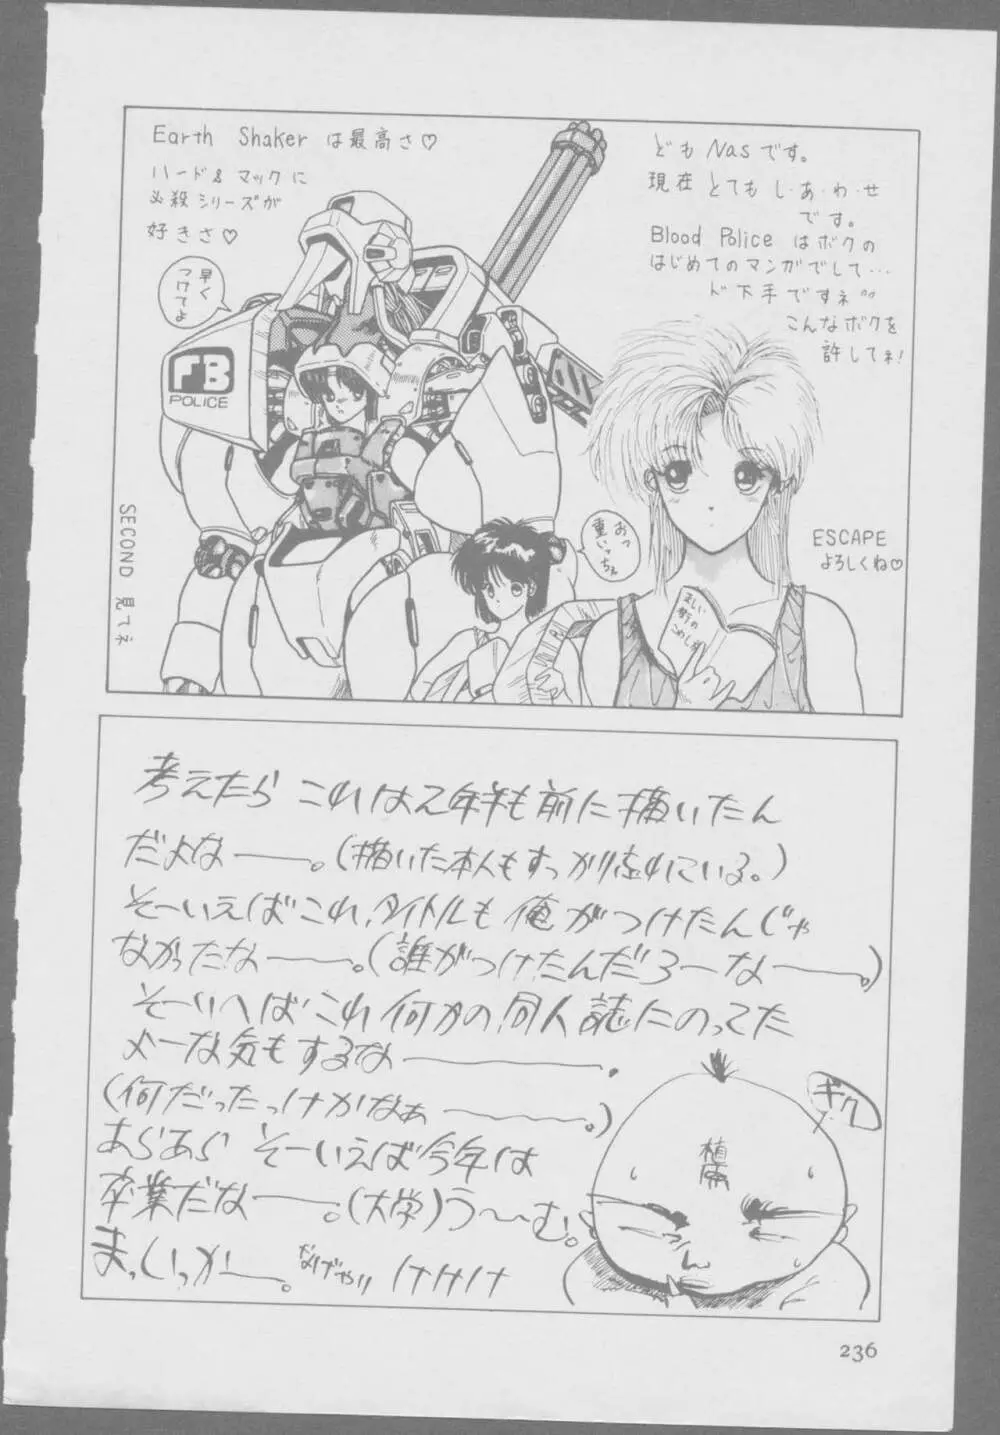 Earth Shaker は最高さ♡
ハード&マックに
必殺シリーズが
好きさ♡
どもNasです。
現在とてもし・あ・わ・せ
です。
Blood Policeはボクの
はじめてのマンガでして…
ド下手ですネ〃
こんなボクを
許してネ!
早く
つけてよ
FB
POLICE
SECOND 見てネ
おっ
重いっちぇ
ESCAPE
よろしくね♡
美しい
街の
考えたら これは2年半も前に描いたん
だよなー。(描いた本人もすっかり忘れている。)
そーいえばこれ、タイトルも俺がつけたんじゃ
なかったなー。(誰がつけたんだろーなー。)
そーいへばこれ何かの同人誌にのってた
よーな気もするなー.
(何だったっけかなぁー。)
あらあら そーいえば今年は
卒業だなー。(大学)う〜む。
まっいっかー。なげやり けけけ
ギク
236